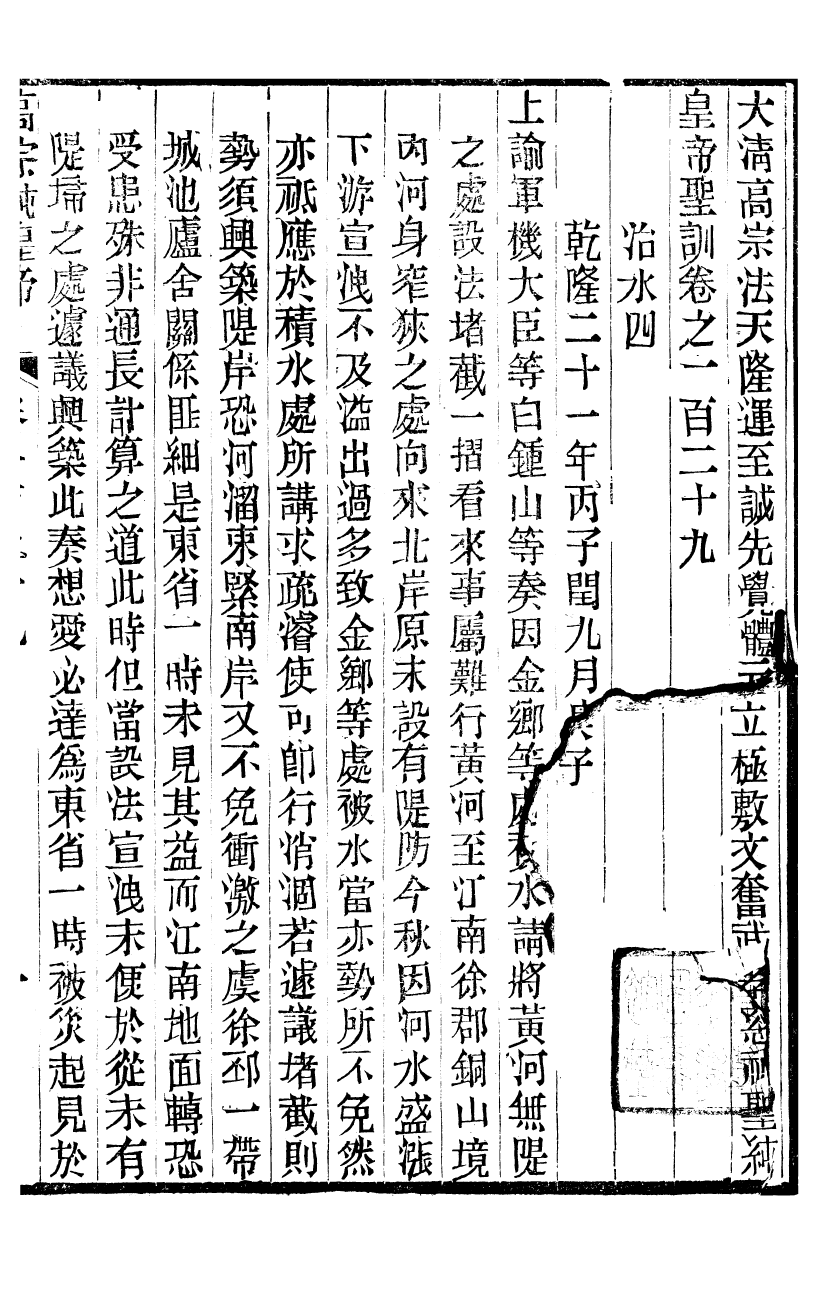 大清高宗法天隆運至誠先覺體元立極敷文奮武孝慈神聖純
皇帝聖訓卷之一百二十九
治水四
乾隆二十一年丙子閏九月庚子
上諭軍機大臣等白鍾山等奏因金鄉等處被水請將黃河無隄
之處設法堵截一摺看來事屬難行黃河至江南徐郡銅山境
內河身窄狹之處向來北岸原未設有隄防今秋因河水盛漲
下游宣洩不及溢出過多致金鄉等處被水當亦勢所不免然
亦祗應於積水處所講求疏濬使可即行消涸若遽議堵截則
勢須興築隄岸恐河溜束緊南岸又不免衝激之虞徐邳一帶
城池廬舍關係匪細是東省一時未見其益而江南地面轉恐
受患殊非通長計算之道此時但當設法宣洩未便於從未有
隄埽之處遽議興築此奏想愛必達為東省一時被災起見於
高宗純皇帝